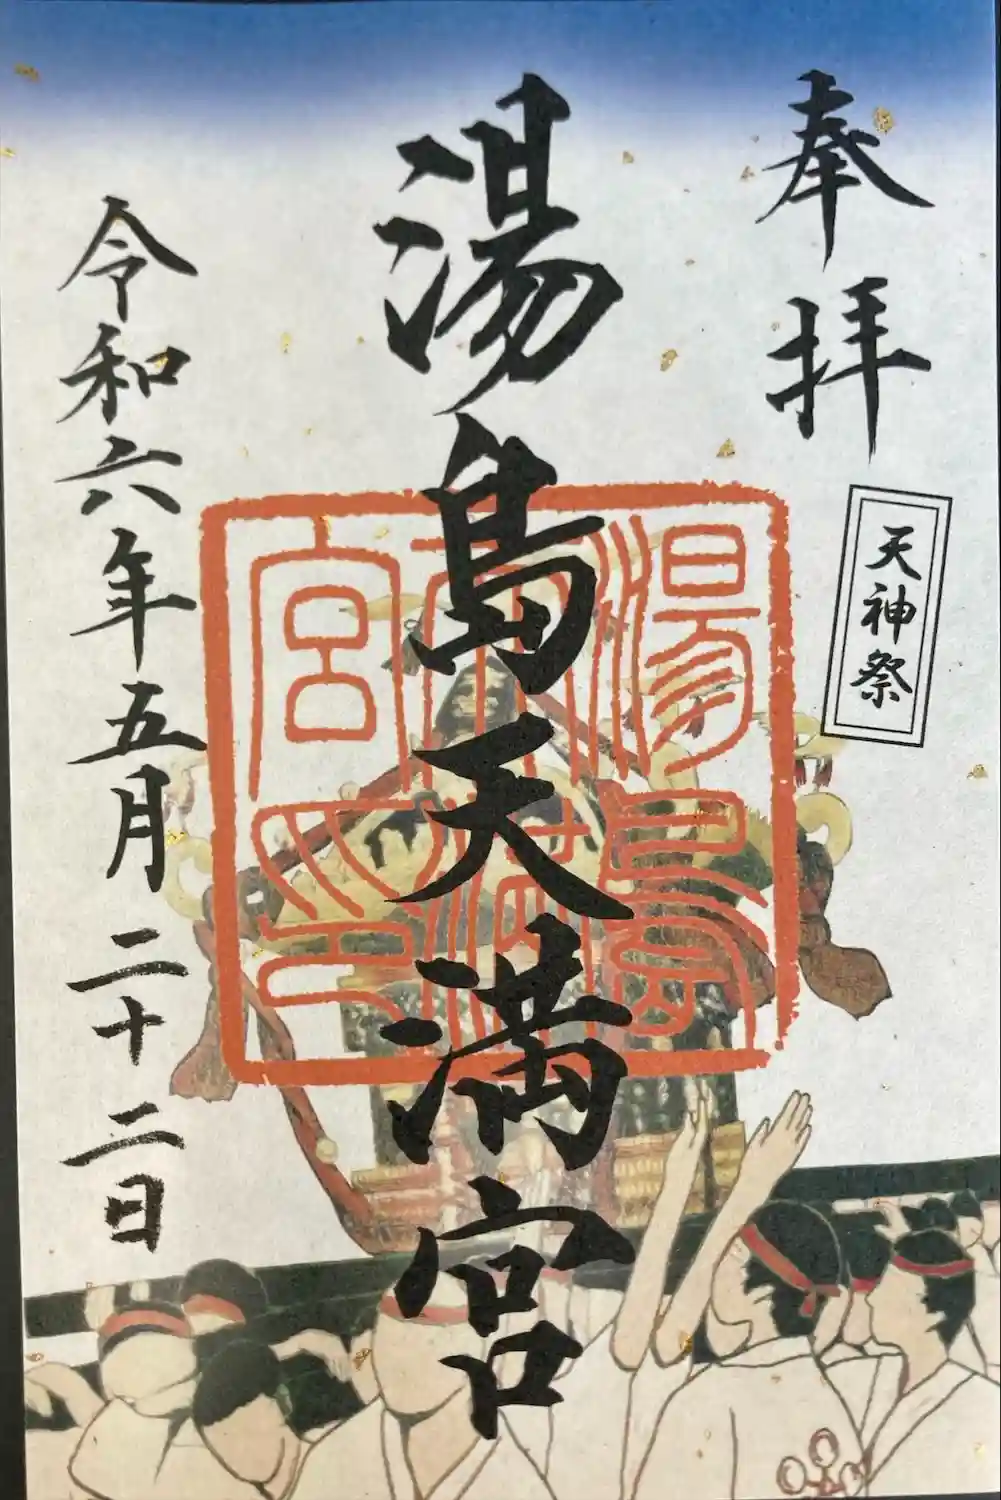 奉拝
天神祭
湯島天満宮
湯島天満宮之印
令和六年五月二十二日